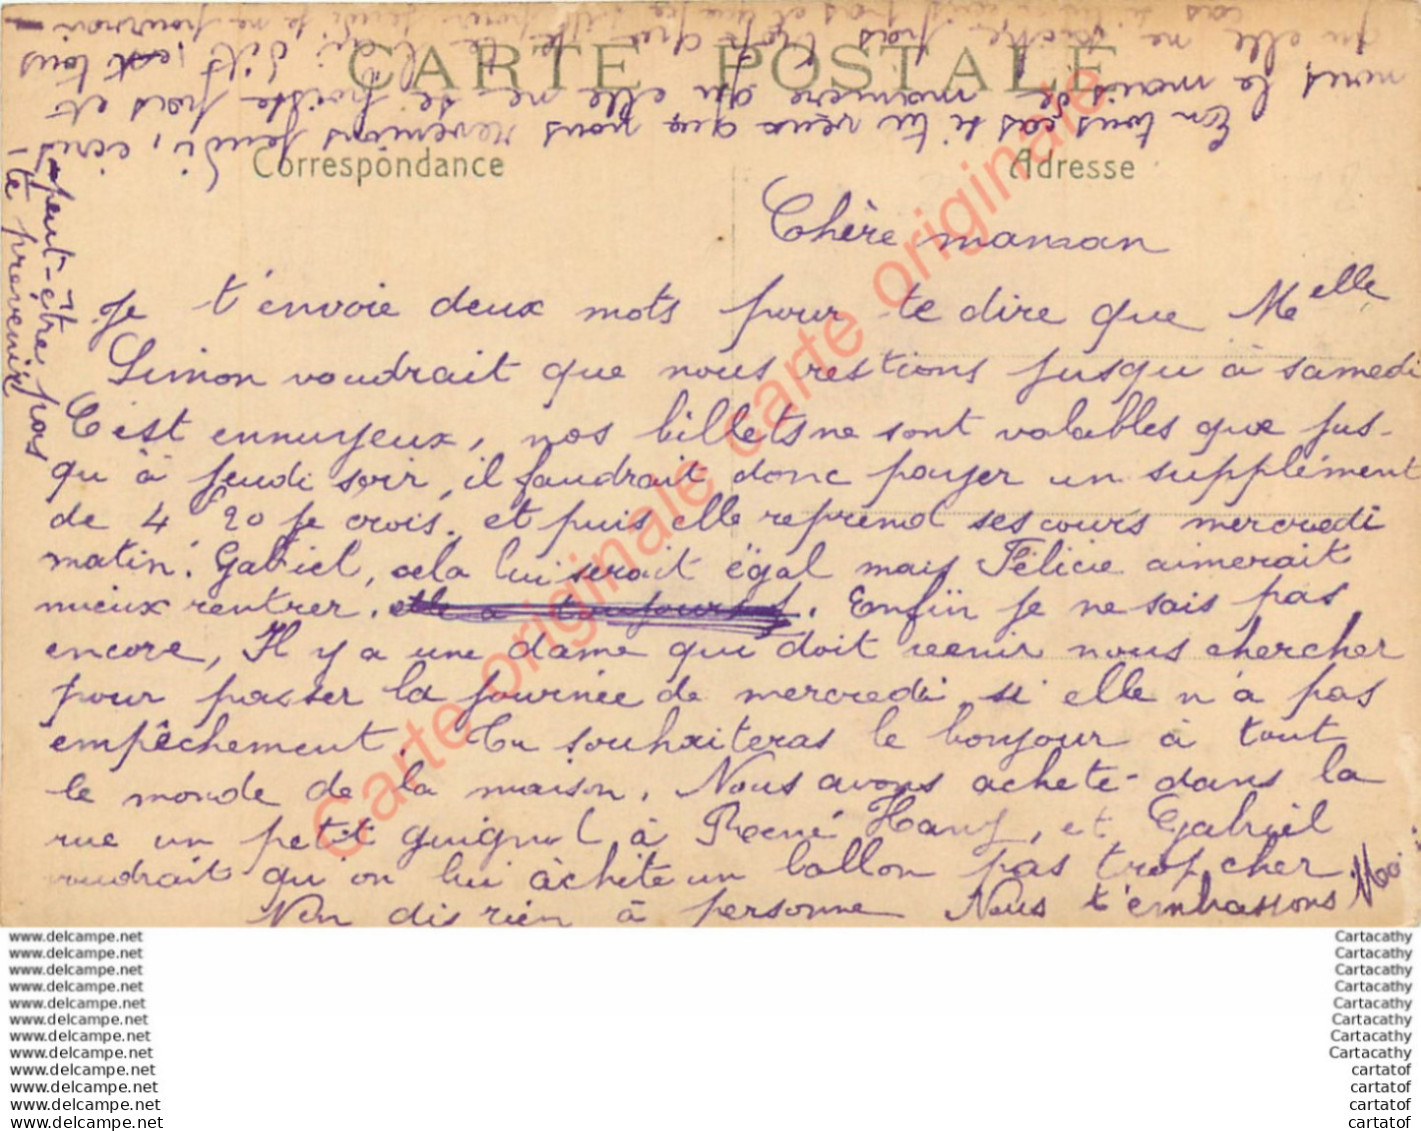 CARTE POSTALE
Correspondance
Adresse
Chère maman
Je t'envoie deux mots pour te dire que Melle
Simon voudrait que nous restions jusqu'à samedi
C'est ennuyeux, nos billets ne sont valables que jus-
qu'à jeudi soir, il faudrait donc payer un supplément
de 4 20 je crois. et puis elle reprend ses cours mercredi
matin. Gabriel, cela lui serait égal mais Félicie aimerait
mieux rentrer. Enfin je ne sais pas
encore, Il y a une dame qui doit venir nous chercher
pour passer la journée de mercredi si elle n'a pas
empêchement. Tu souhaiteras le bonjour à tout
le monde de la maison. Nous avons acheté dans la
rue un petit guignol à René, et Gabriel
voudrait qu'on lui achète un ballon pas trop cher
N'en dis rien à personne Nous t'embrassons
En tous cas si tu veux que nous revenions jeudi, écris
nous le mais de manière qu'elle ne se froisse pas et
qu'elle ne
cas si
je ne pourrai
peut-être pas
te prévenir
Carte originale carte originale carte originale
www.delcampe.net
www.delcampe.net
www.delcampe.net
www.delcampe.net
www.delcampe.net
www.delcampe.net
www.delcampe.net
www.delcampe.net
www.delcampe.net
www.delcampe.net
www.delcampe.net
www.delcampe.net
Cartacathy
Cartacathy
Cartacathy
Cartacathy
Cartacathy
Cartacathy
Cartacathy
Cartacathy
cartatof
cartatof
cartatof
cartatof